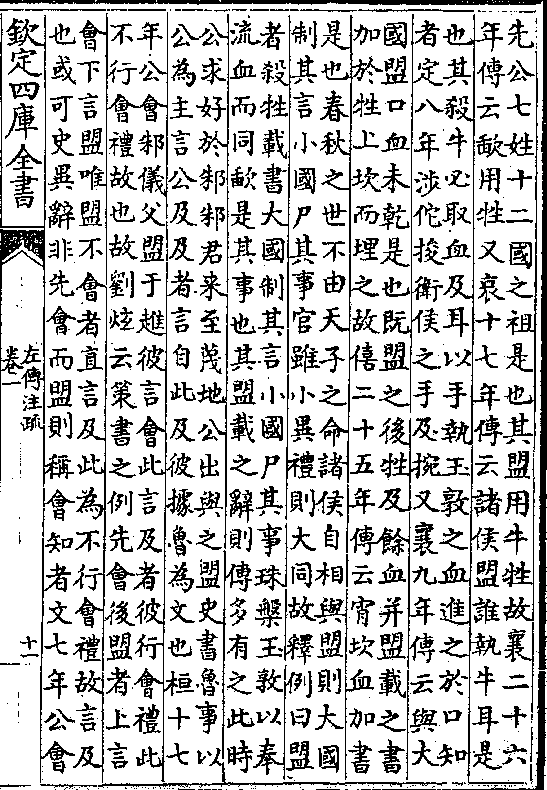 先公七姓十二國之祖是也其盟用牛牲故襄二十六
年傳云歃用牲又哀十七年傳云諸侯盟誰執牛耳是
也其殺牛必取血及耳以手執玉敦之血進之於口知
者定八年涉佗捘衛侯之手及捥又襄九年傳云與大
國盟口血未乾是也既盟之後牲及餘血并盟載之書
加於牲上坎而埋之故僖二十五年傳云宵坎血加書
是也春秋之世不由天子之命諸侯自相與盟則大國
制其言小國尸其事官雖小異禮則大同故釋例曰盟
者殺牲載書大國制其言小國尸其事珠槃玉敦以奉
流血而同歃是其事也其盟載之辭則傳多有之此時
公求好於邾邾君来至蔑地公出與之盟史書魯事以
公為主言公及及者言自此及彼據魯為文也桓十七
年公會邾儀父盟于趡彼言會此言及者彼行會禮此
不行會禮故也故劉炫云策書之例先會後盟者上言
會下言盟唯盟不會者直言及此為不行會禮故言及
也或可史異辭非先會而盟則稱會知者文七年公會
欽定四庫全書
左傳注疏
卷一
十一